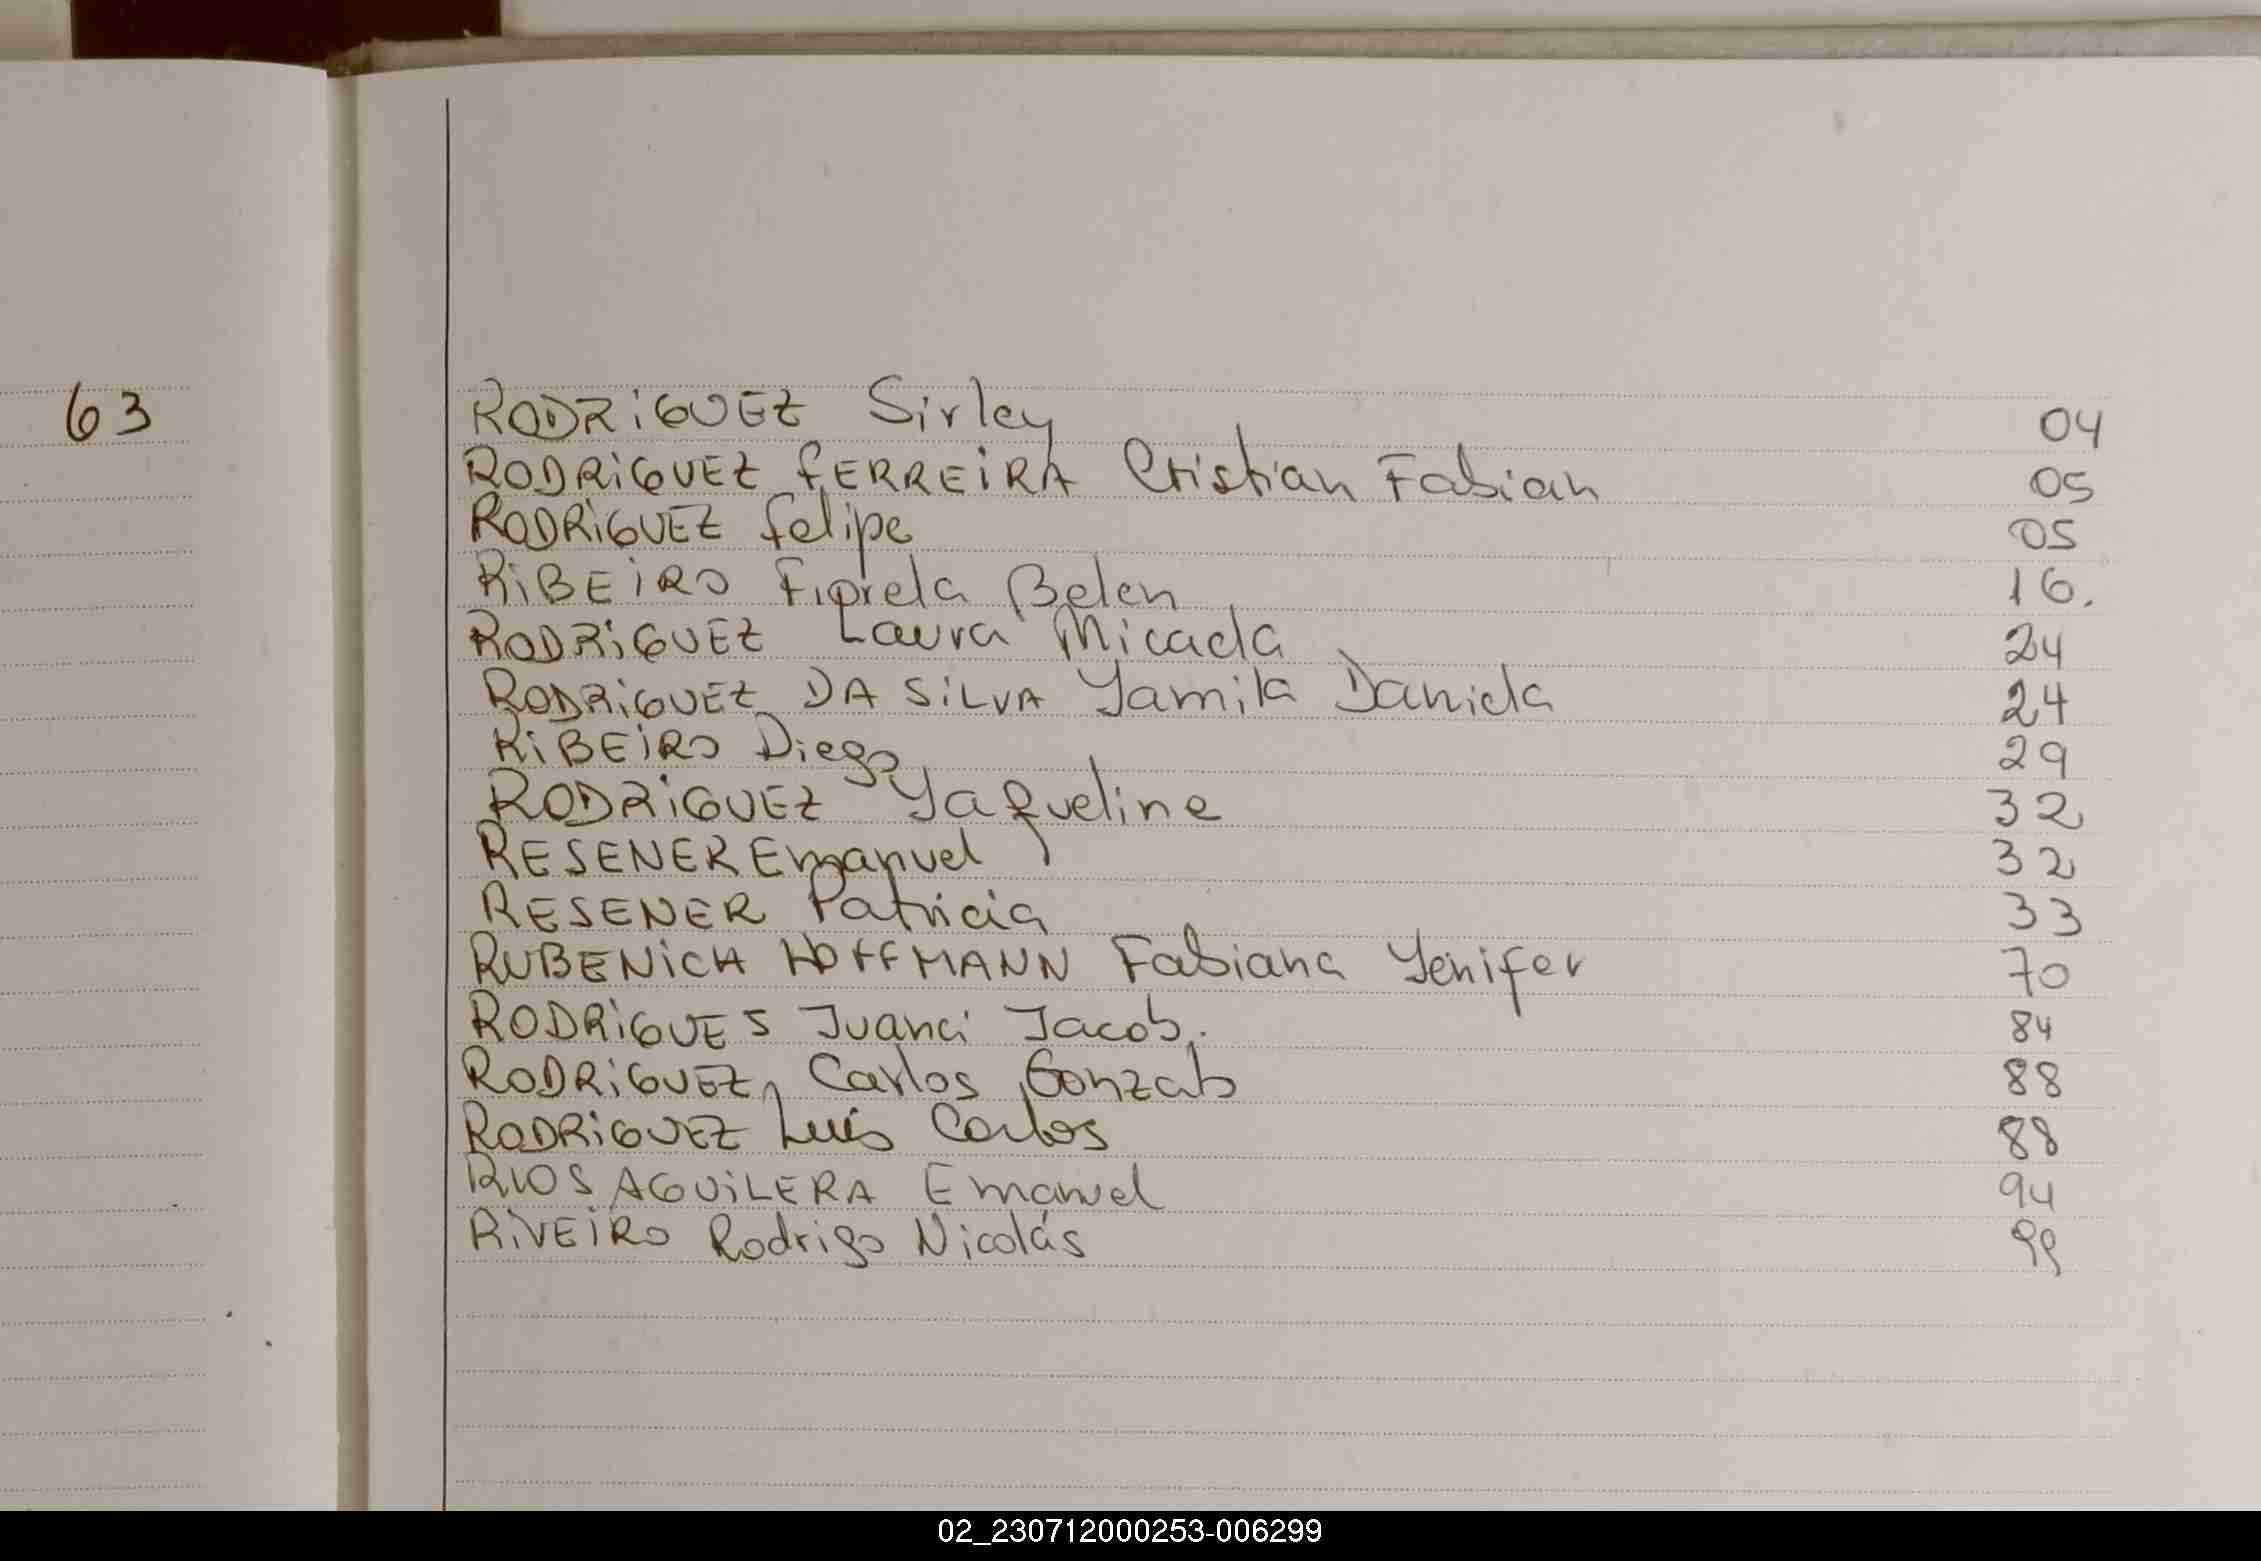 63
RODRiGUEZ Sirley 04
RODRiGUEZ fERREiRA Cristian Fabian 05
RODRiGUEZ felipe 05
RiBEiRO Fiorela Belen 16.
RODRiGUEZ Laura Micaela 24
RODRiGUEZ DA SiLVA Yamila Daniela 24
RiBEiRO Diego 29
RODRiGUEZ Yaqueline 32
RESENER Emanuel 32
RESENER Patricia 33
RUBENiCH HOFFMANN Fabiana Yenifer 70
RODRiGUES Juanci Jacob. 84
RODRiGUEZ Carlos Gonzalo 88
RODRiGUEZ Luis Carlos 88
RIOS AGUiLERA Emanuel 94
RiVEiRO Rodrigo Nicolás 99
02_230712000253-006299